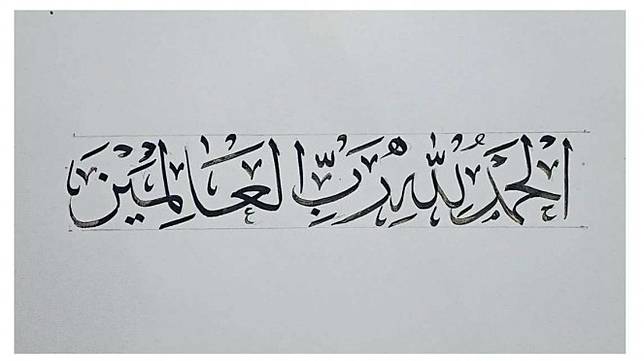 الْحَمْدُ لِلّٰهِ رَبِّ الْعَالَمِيْنَ